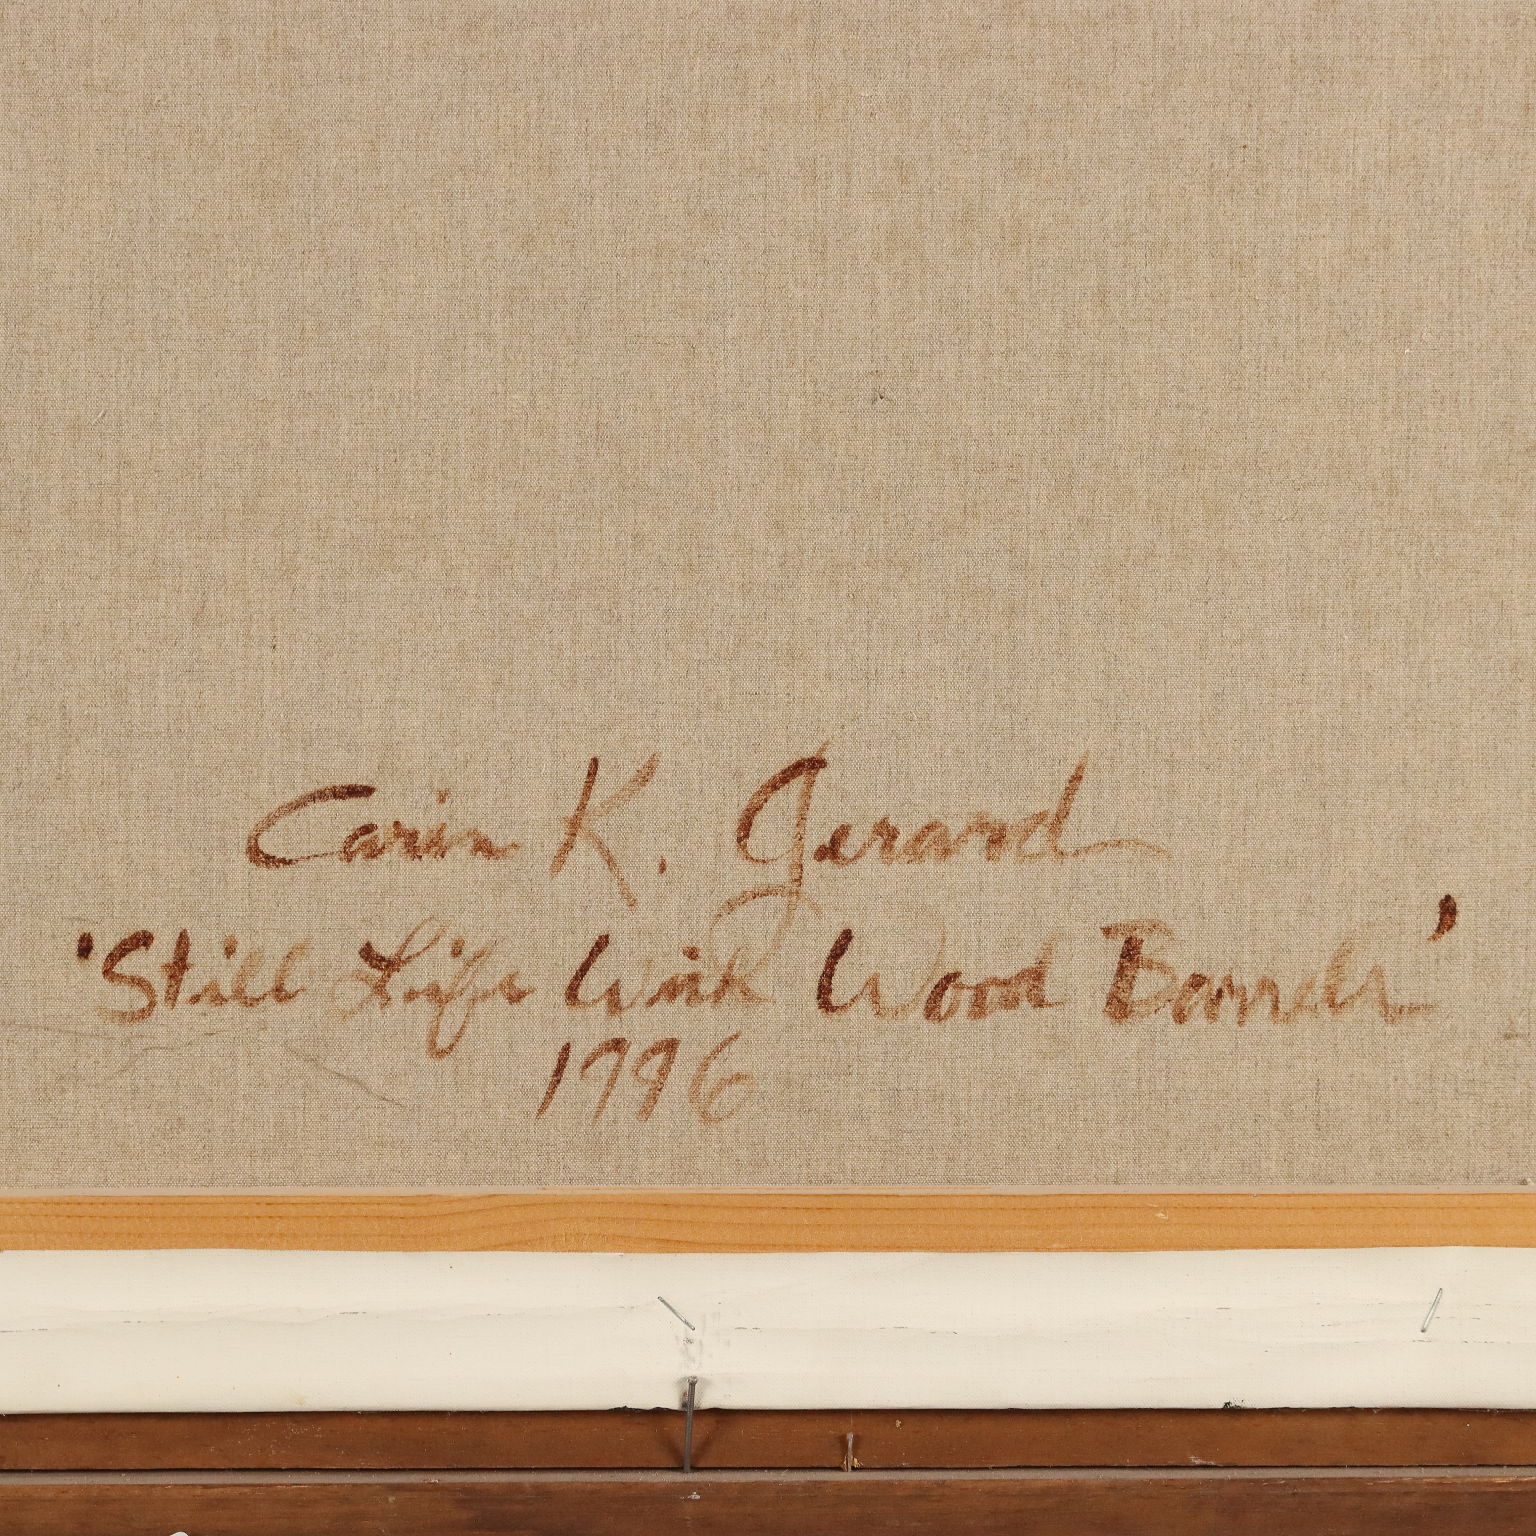 Carin K. Gerard
'Still Life With Wood Barrels'
1996